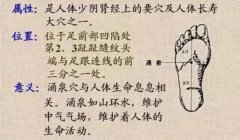 属性：是人体少阴肾经上的要穴及人体长寿
大穴之一。
位置：位于足前部凹陷处
第2、3趾趾缝纹头
端与足跟连线的前
三分之一处。
涌泉
意义：涌泉穴与人体生命息息相
关。涌泉如山环水，维护
中气气场，维护着人体的
生命活动。